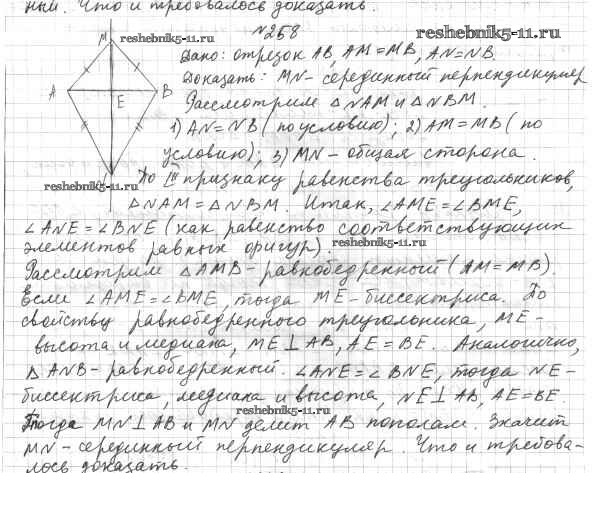 ный. Что и требовалось доказать.
№258
reshebnik5-11.ru
M
reshebnik5-11.ru
Дано: отрезок AB, AM=MB, AN=NB.
Доказать: MN- серединный перпендикуляр
A
B
E
Рассмотрим △NAM и △NBM.
1) AN=NB (по условию); 2) AM=MB (по
условию); 3) MN- общая сторона.
reshebnik5-11.ru
По III признаку равенства треугольников,
△NAM=△NBM. Итак, ∠AME=∠BME,
∠ANE=∠BNE (как равенство соответствующих
элементов равных фигур).
reshebnik5-11.ru
Рассмотрим △AMB- равнобедренный (AM=MB).
Если ∠AME=∠BME, тогда ME-биссектриса. По
свойству равнобедренного треугольника, ME-
высота и медиана, ME⊥AB, AE=BE. Аналогично,
△ANB- равнобедренный. ∠ANE=∠BNE, тогда NE-
биссектриса, медиана и высота, NE⊥AB, AE=BE.
reshebnik5-11.ru
Тогда MN⊥AB и MN делит AB пополам. Значит
MN-серединный перпендикуляр. Что и требова-
лось доказать.